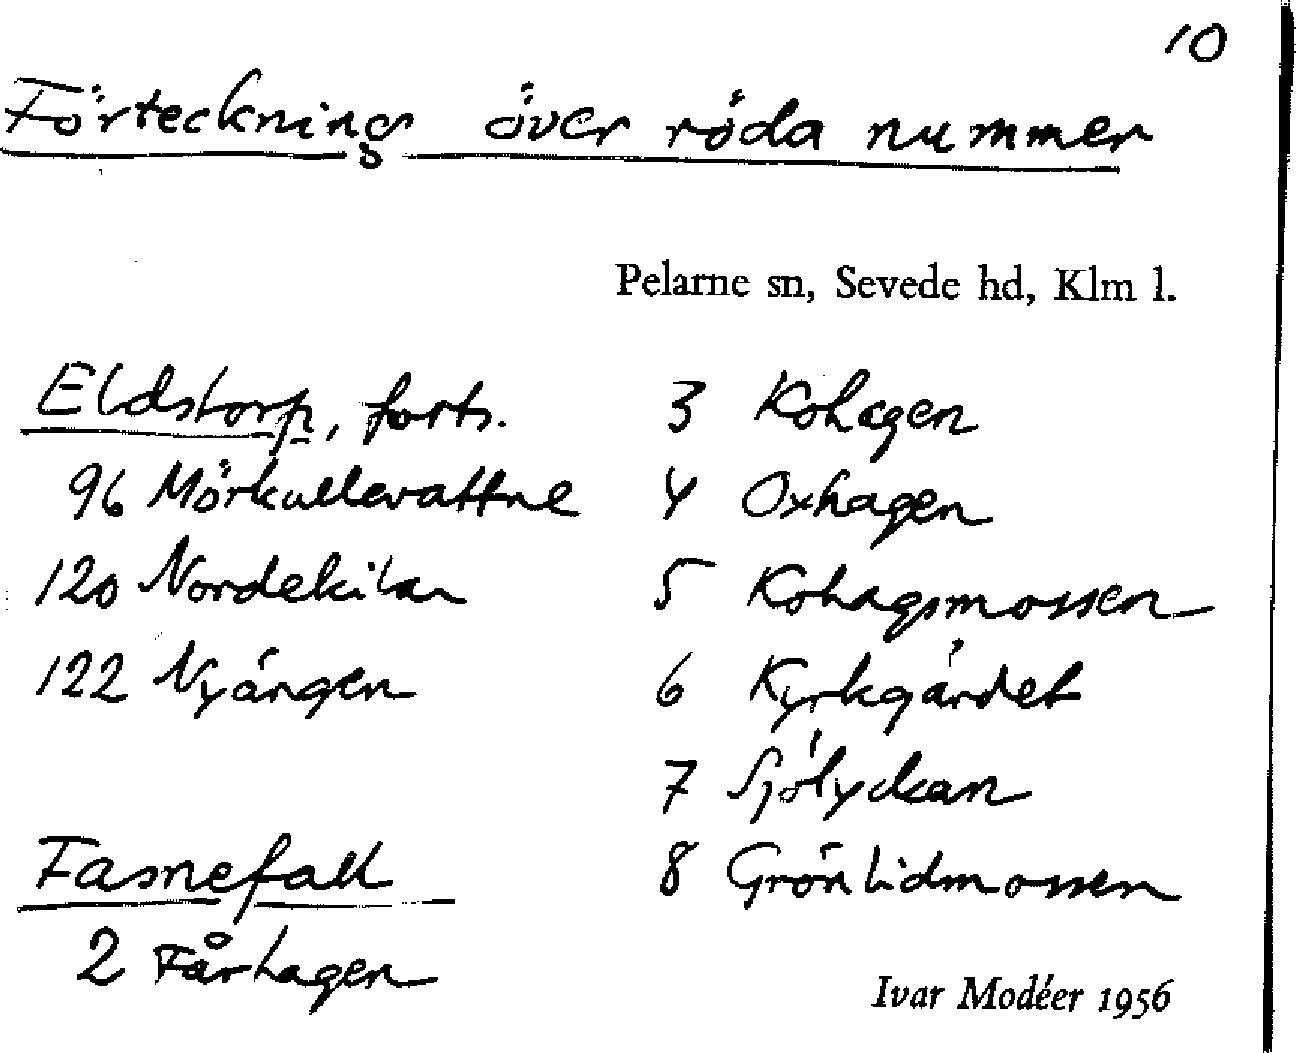 10
Förteckning över röda nummer
Pelarne sn, Sevede hd, Klm l.
Eldstorp, forts.
96 Mörkullevattne
120 Nordekilan
122 Nyängen
Fasnefall
2 Fårhagen
3 Kohagen
4 Oxhagen
5 Kohagsmossen
6 Kyrkgärdet
7 Sjölyckan
8 Grönlidmossen
Ivar Modéer 1956